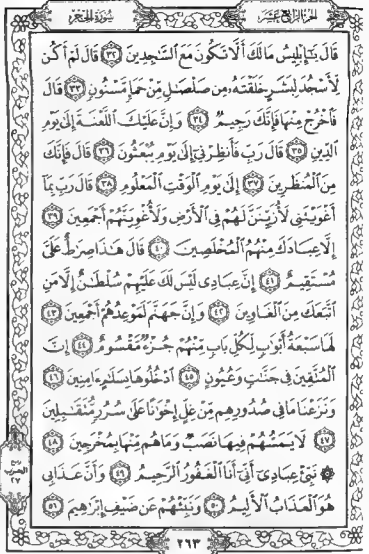 الجزء الرابع عشر
سورة الحجر
قَالَ يَٰٓإِبْلِيسُ مَا لَكَ أَلَّا تَكُونَ مَعَ ٱلسَّٰجِدِينَ ٣٢ قَالَ لَمْ أَكُن
لِّأَسْجُدَ لِبَشَرٍ خَلَقْتَهُۥ مِن صَلْصَٰلٍ مِّنْ حَمَإٍ مَّسْنُونٍ ٣٣ قَالَ
فَٱخْرُجْ مِنْهَا فَإِنَّكَ رَجِيمٌ ٣٤ وَإِنَّ عَلَيْكَ ٱللَّعْنَةَ إِلَىٰ يَوْمِ
ٱلدِّينِ ٣٥ قَالَ رَبِّ فَأَنظِرْنِىٓ إِلَىٰ يَوْمِ يُبْعَثُونَ ٣٦ قَالَ فَإِنَّكَ
مِنَ ٱلْمُنظَرِينَ ٣٧ إِلَىٰ يَوْمِ ٱلْوَقْتِ ٱلْمَعْلُومِ ٣٨ قَالَ رَبِّ بِمَآ
أَغْوَيْتَنِى لَأُزَيِّنَنَّ لَهُمْ فِى ٱلْأَرْضِ وَلَأُغْوِيَنَّهُمْ أَجْمَعِينَ ٣٩
إِلَّا عِبَادَكَ مِنْهُمُ ٱلْمُخْلَصِينَ ٤٠ قَالَ هَٰذَا صِرَٰطٌ عَلَىَّ
مُسْتَقِيمٌ ٤١ إِنَّ عِبَادِى لَيْسَ لَكَ عَلَيْهِمْ سُلْطَٰنٌ إِلَّا مَنِ
ٱتَّبَعَكَ مِنَ ٱلْغَاوِينَ ٤٢ وَإِنَّ جَهَنَّمَ لَمَوْعِدُهُمْ أَجْمَعِينَ ٤٣
لَهَا سَبْعَةُ أَبْوَٰبٍ لِّكُلِّ بَابٍ مِّنْهُمْ جُزْءٌ مَّقْسُومٌ ٤٤ إِنَّ
ٱلْمُتَّقِينَ فِى جَنَّٰتٍ وَعُيُونٍ ٤٥ ٱدْخُلُوهَا بِسَلَٰمٍ ءَامِنِينَ ٤٦
وَنَزَعْنَا مَا فِى صُدُورِهِم مِّنْ غِلٍّ إِخْوَٰنًا عَلَىٰ سُرُرٍ مُّتَقَٰبِلِينَ
٤٧ لَا يَمَسُّهُمْ فِيهَا نَصَبٌ وَمَا هُم مِّنْهَا بِمُخْرَجِينَ ٤٨
۞ نَبِّئْ عِبَادِىٓ أَنِّىٓ أَنَا ٱلْغَفُورُ ٱلرَّحِيمُ ٤٩ وَأَنَّ عَذَابِى
هُوَ ٱلْعَذَابُ ٱلْأَلِيمُ ٥٠ وَنَبِّئْهُمْ عَن ضَيْفِ إِبْرَٰهِيمَ ٥١
ربع
الحزب
٢٧
٢٦٣